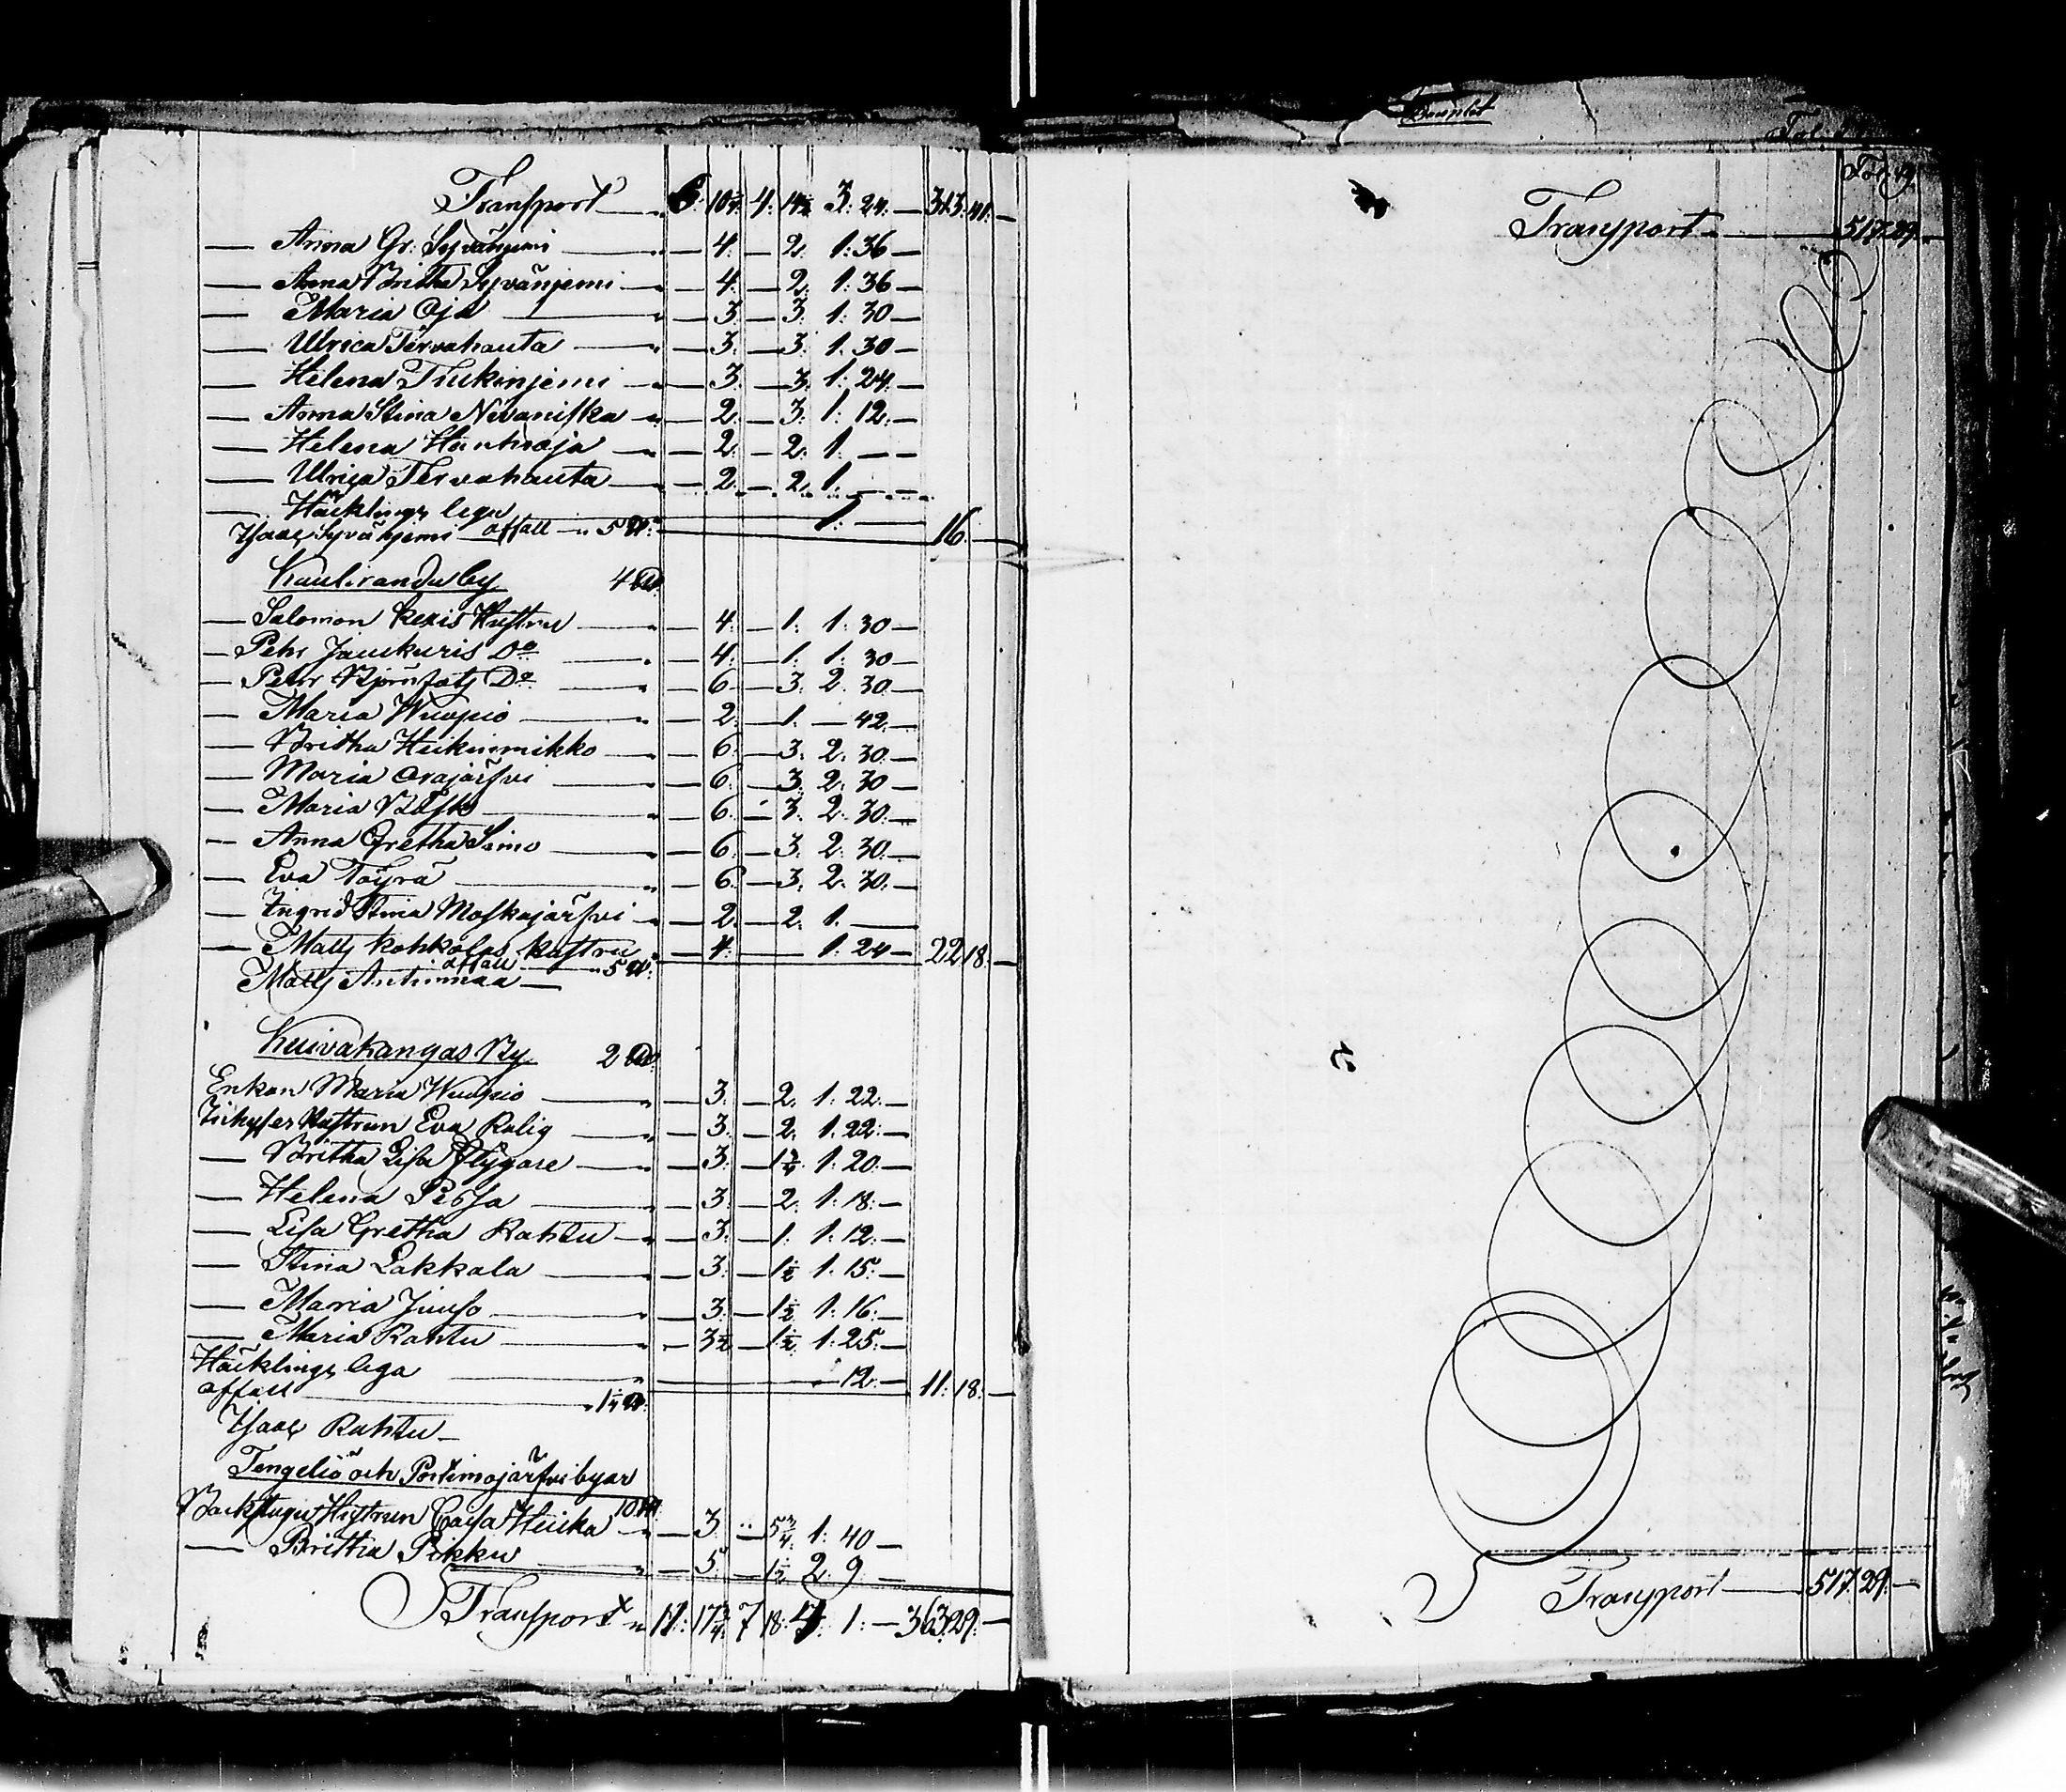 Transport 6. 10 4. 3. 24. — 313. 41. —
— Anna Gr. Syvänjemi — 4. — 2. 1. 36 —
— Anna Britha Syvänjemi — 4. — 2. 1. 36 —
— Maria Oja — 3. — 3. 1. 30 —
— Ulrica Tervahauta — 3. — 3. 1. 30 —
— Helena — 3. — 3. 1. 24. —
— Anna Stina Nivaniska — 2. — 3. 1. 12. —
— Helena — 2. — 2. 1. — —
— Ulrica Tervahauta — 2. — 2. 1. — —
— Häcklings lega 1. —
Isaac Syvänjemi affall — 5 ℔. 16. —
Kauliranda by 4 ℔.
— Salomon Kexis Hustru — 4. — 1. 1. 30 —
— Pehr Jauckuris Do — 4. — 1. 1. 30 —
— Petter Do — 6 — 3. 2. 30. —
— Maria Wuopio — 2. — 1. — 42. —
— Britha Heikinmikko — 6. — 3. 2. 30. —
— Maria Orajärfvi — 6. — 3. 2. 30 —
— Maria — 6. — 3. 2. 30. —
— Anna Gretha Simo — 6. — 3. 2. 30. —
— Eva Töyrä — 6. — 3. 2. 30. —
— Ingrid Stina Moskajärfvi — 2. — 2. 1. —
— Matts hustru — 4. — 1. 24 — 22. 18. —
affall — 5 ℔.
Matts Antinmaa —
Kuivakangas By 2 ℔.
Enkan Maria Wuopio — 3. — 2. 1. 22. —
Inhyses Hustrun Eva Kalig — 3. — 2. 1. 22. —
— Britha Lisa Flygare — 3. — 1¾. 1. 20. —
— Helena — 3. — 2. 1. 18. —
— Lisa Gretha Rahtu — 3. — 1. 1. 12. —
— Stina Lakkala — 3. — 1½ 1. 15. —
— Maria Junso — 3. — 1½ 1. 16. —
— Maria Rahtu — 3½ — 1½ 1. 25. —
Häcklings lega — 12. — 11. 18. —
affall
Isaac Rahtu —
Tengeliö och Portimojärfvi byar
10 ℔.
Backstugu Hustrun Caisa Heicka — 3. 5¾. 1. 40 —
— Britha Pikku — 5. — 1½ 2. 9. —
Transport 11. 17¾ 7 18. 1. — 363. 29. —
Fol. 19.
Transport — 517. 29. —
Transport — 517. 29. —